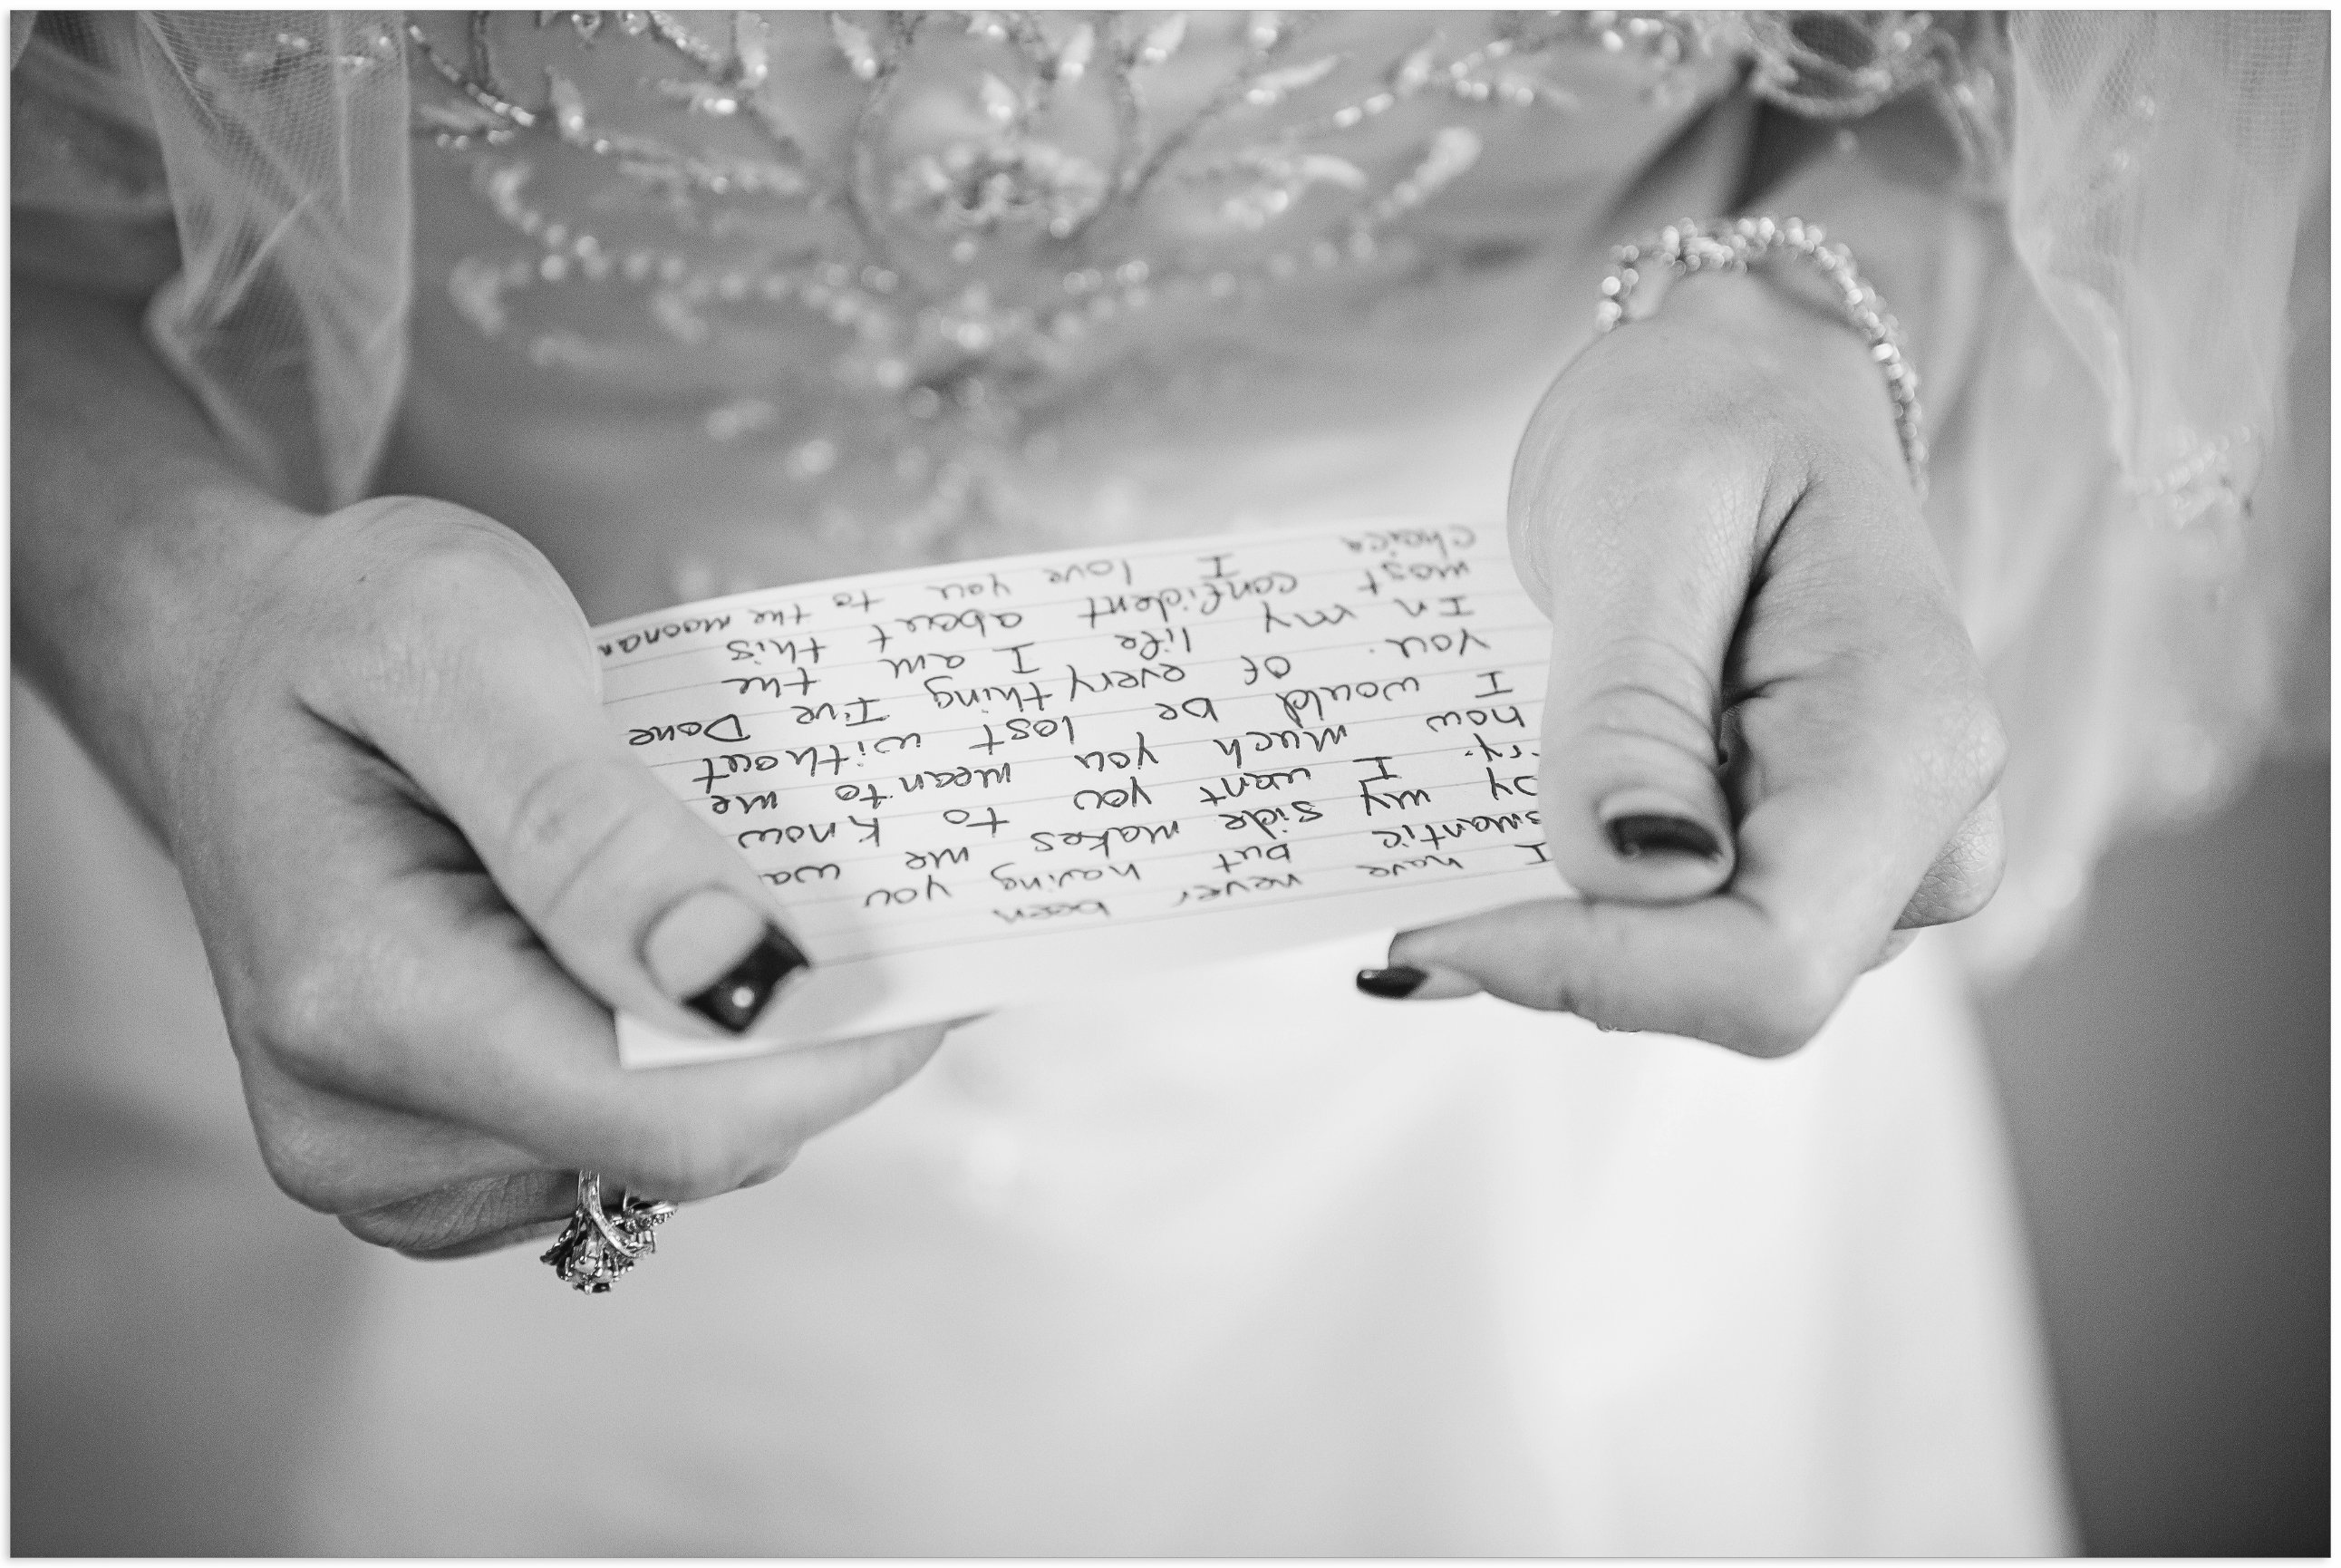 I have never been
omantic but having you
by my side makes me wa
ry. I want you to know
how much you mean to me
I would be lost without
you. Of everything I've Done
In my life I am the
most confident about this
choice I love you to the moon an